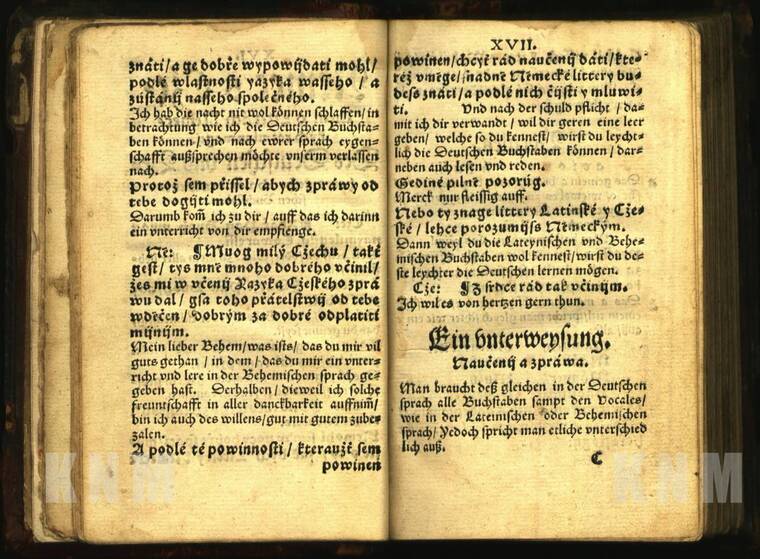 znáti / a ge dobře wypowijdati mohl /
podlé wlastnosti yazyka wasseho / a
zůstánij nasseho společného.
Ich hab die nacht nit wol können schlaffen / in
betrachtung wie ich die Deutschen Buchsta-
ben können / vnd nach ewrer sprach eygen-
schafft außsprechen möchte vnserm verlassen
nach.
Protož sem přissel / abych zpráwy od
tebe dogijti mohl.
Darumb kom̃ ich zu dir / auff das ich darinn
ein vnterricht von dir empfienge.
Ně: ¶ Muog milý Cžechu / také
gest / tys mně mnoho dobrého včinil /
žes mi w včenij Yazyka Cžeského zprá
wu dal / gsa toho přátelstwij od tebe
wděčen / dobrým za dobré odplatiti
mijnijm.
Mein lieber Behem / was ists / das du mir vil
guts gethan / in dem / das du mir ein vnter-
richt vnd lere in der Behemischen sprach ge-
geben hast. Derhalben / dieweil ich solche
freuntschafft in aller danckbarkeit auffnim̃ /
bin ich auch des willens / gut mit gutem zube-
zalen.
A podlé té powinnosti / kterauž sem
powinen
XVII.
powinen / chcyť rád naučenij dáti / kte-
réž vměge / snadně Německé littery bu-
deš znáti / a podlé nich čijsti y mluwi-
ti. Vnd nach der schuld pflicht / da-
mit ich dir verwandt / wil dir geren eine leer
geben / welche so du kennest / wirst du leycht-
lich die Deutschen Buchstaben können / dar-
neben auch lesen vnd reden.
Gediné pilně pozorůg.
Merck nur fleissig auff.
Nebo ty znage littery Latinské y Cže-
ské / lehce porozumijš Německým.
Dann weyl du die Lateynischen vnd Behe-
mischen Buchstaben wol kennest / wirst du de-
ste leychter die Deutschen lernen mögen.
Cže: ¶ Z srdce rád tak včinijm.
Ich wil es von hertzen gern thun.
Ein vnterweysung.
Naučenij a zpráwa.
Man braucht deß gleichen in der Deutschen
sprach alle Buchstaben sampt den Vocales /
wie in der Lateinischen oder Behemischen
sprach / Yedoch spricht man etliche vnterschied
lich auß.
C
KNM
KNM